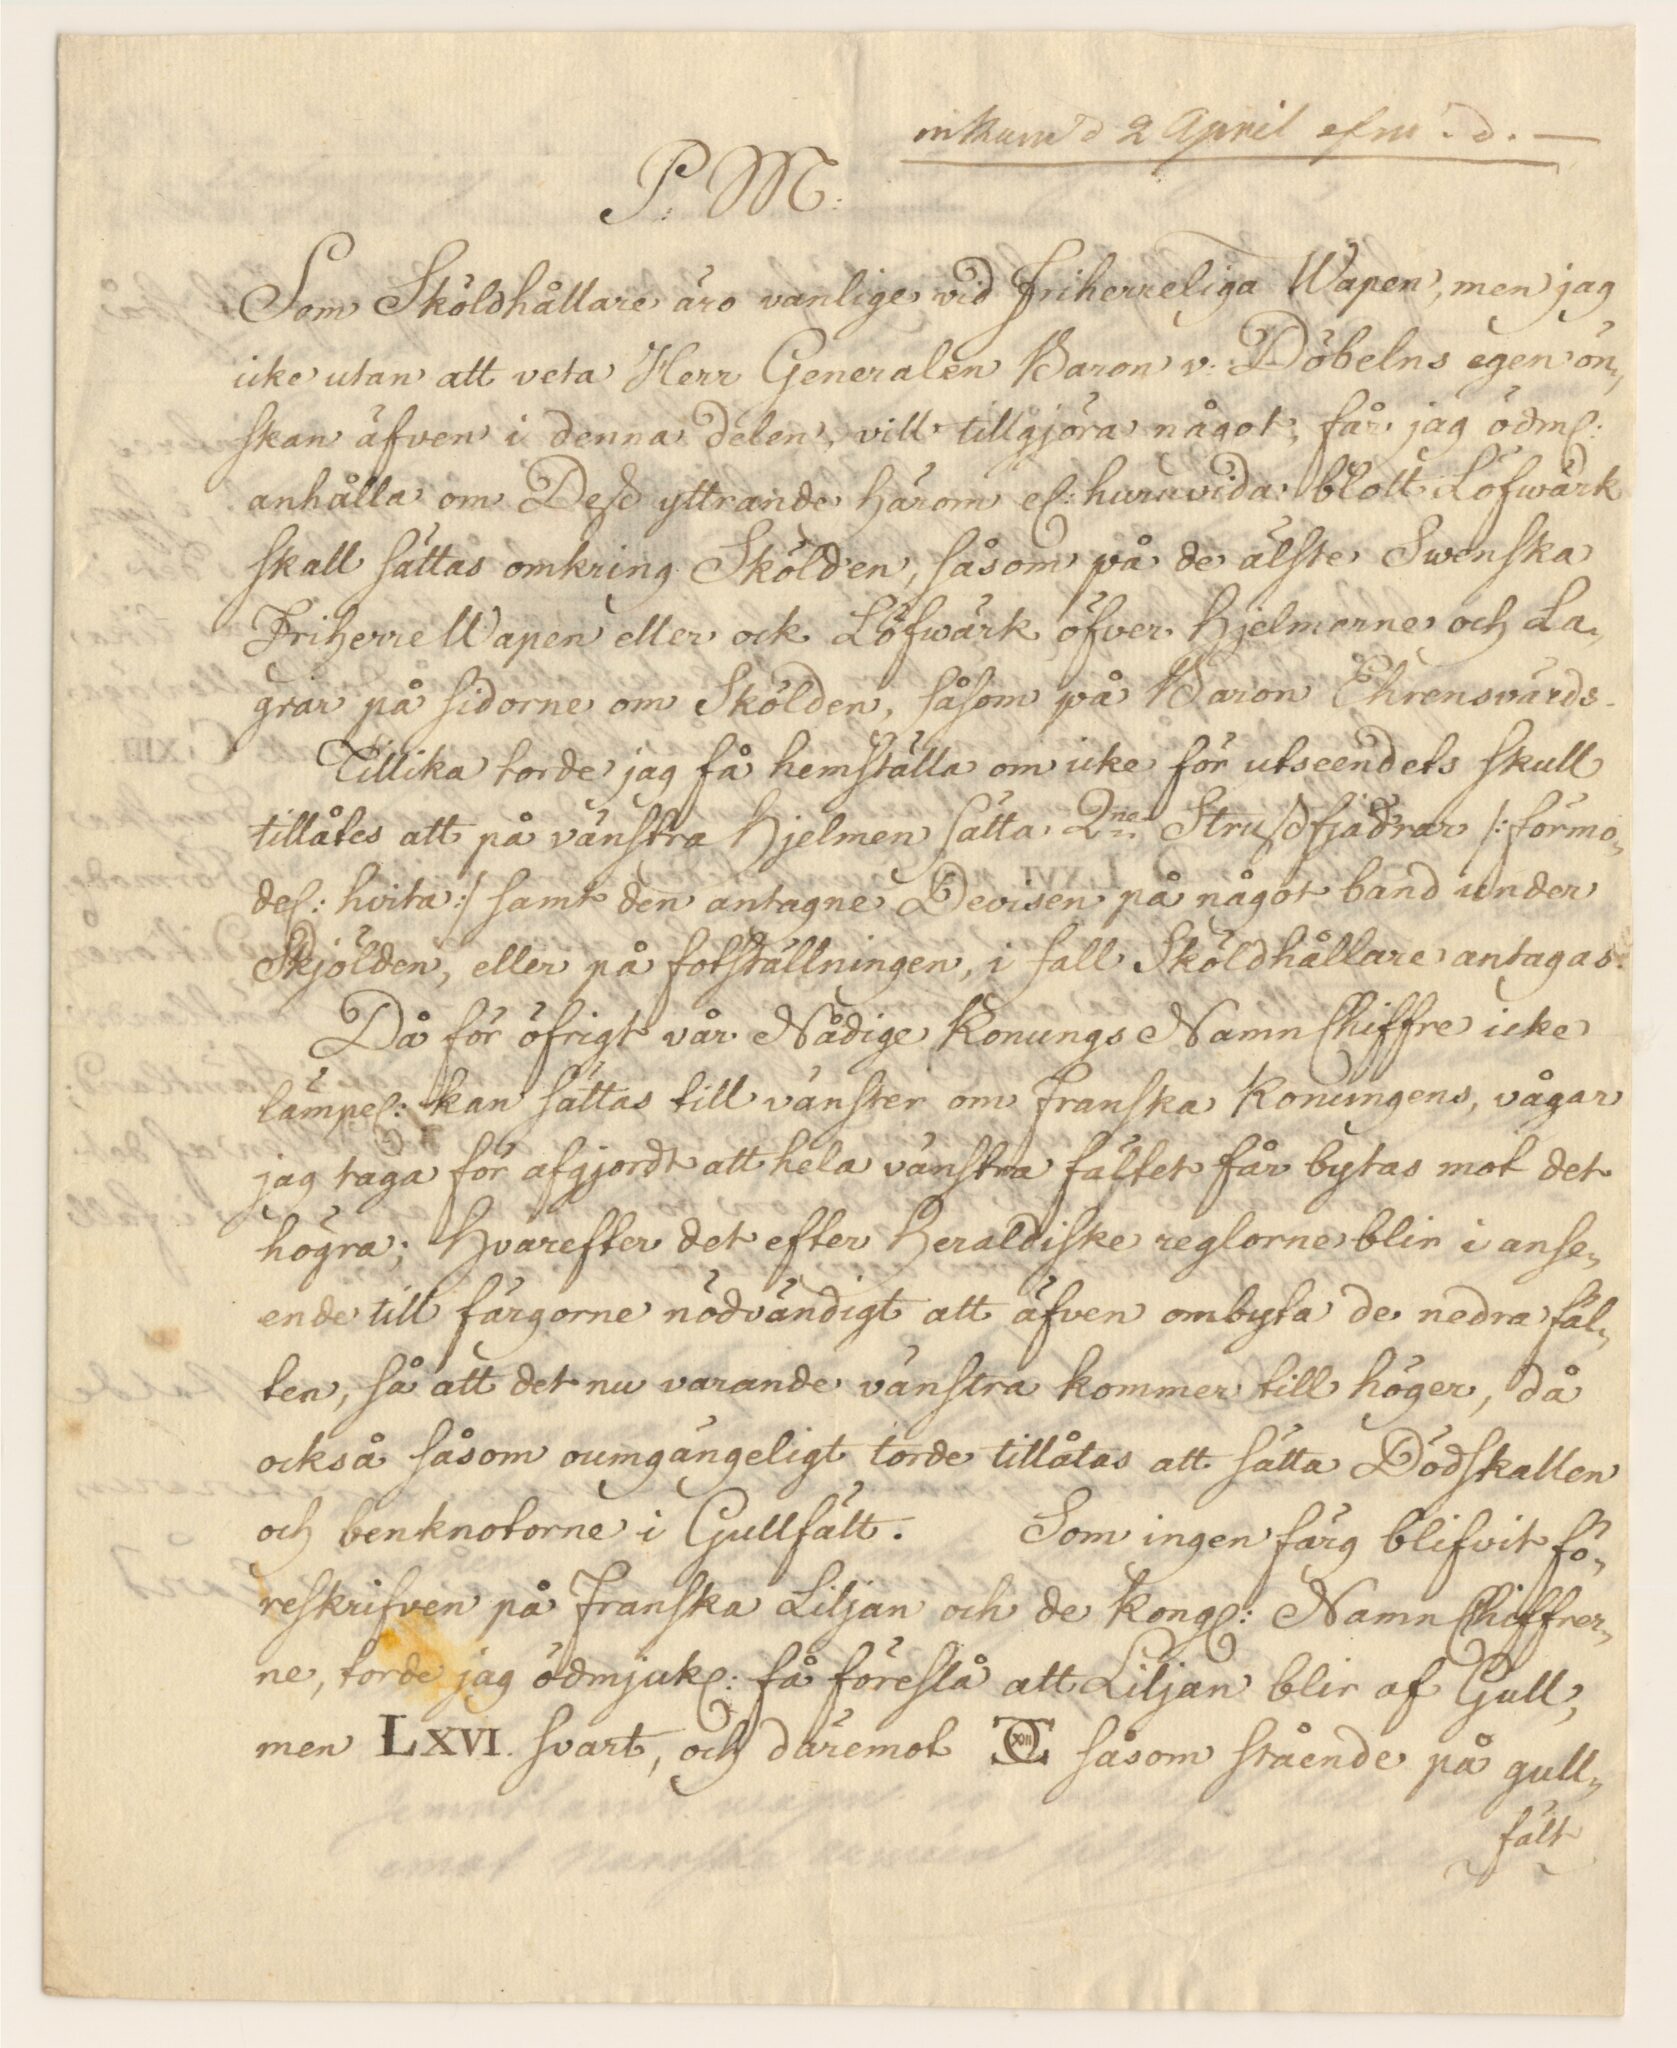 inkom d 2 April
P. M:
Som Sköldhållare äro vanlige vid Friherreliga Wapen, men jag
icke utan att veta Herr Generalen Baron v. Döbelns egen ön„
skan äfven i denna delen, vill tillgjöra något, får jag ödml:
anhålla om Dess yttrande härom el: huruvida blott Löfwärk
skall sättas omkring Skölden, såsom på de älste Swenska
Friherre Wapen eller ock Löfwärk öfver hjelmarne och La„
grar på sidorne om Skölden, såsom på Baron Ehrensvärds.
Tillika torde jag få hemställa om icke för utseendets skull
tillåtes att på vänstra hjelmen sätta 2ne Strussfjädrar /: förmo„
del: hvita :/ samt den antagne Devisen på något band under
Skjölden, eller på fotställningen, i fall Sköldhållare antagas.
Då för öfrigt vår Nådige Konungs Namn Chiffre icke
lämpel: kan sättas till vänster om Franska Konungens, vågar
jag taga för afgjordt att hela vänstra fältet får bytas mot det
högra; hvarefter det efter Heraldiske reglorne blir i anse„
ende till färgorne nödvändigt att äfven ombyta de nedra fäl„
ten, så att det nu varande vänstra kommer till höger, då
också såsom oumgängeligt torde tillåtas att sätta Dödskallen
och benknotorne i Gullfält. Som ingen färg blifvit fö„
reskrifven på Franska Liljan och de Kongl: Namn Chiffrer„
ne, torde jag ödmjukl: få föreslå att Liljan blir af Gull,
men LXVI. svart, och däremot C XIII såsom stående på gull„
fält